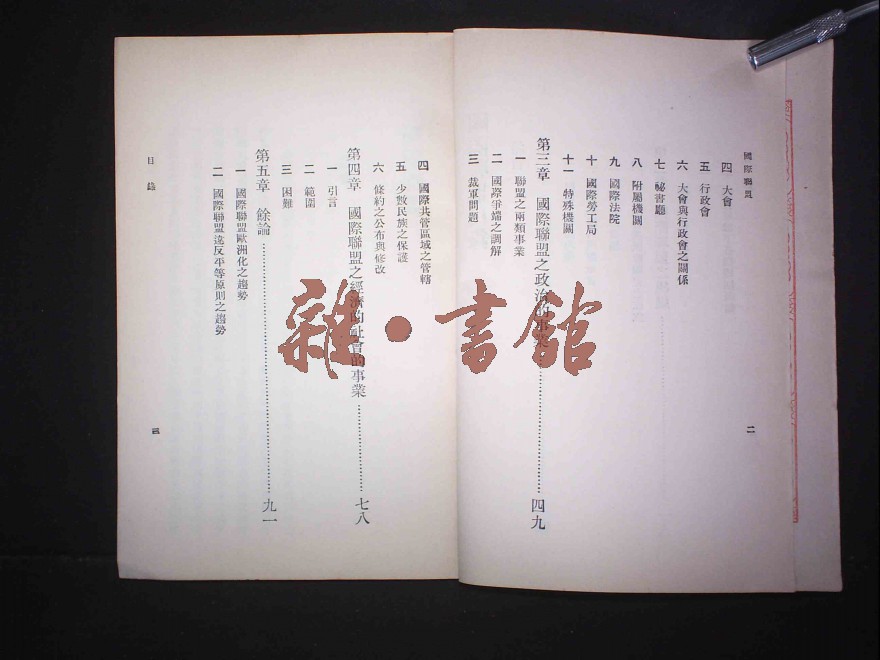 國際聯盟
四 大會
五 行政會
六 大會與行政會之關係
七 祕書廳
八 附屬機關
九 國際法院
十 國際勞工局
十一 特殊機關
第三章 國際聯盟之政治的事業……………………四九
一 聯盟之兩類事業
二 國際爭端之調解
三 裁軍問題
二
四 國際共管區域之管轄
五 少數民族之保護
六 條約之公布與修改
第四章 國際聯盟之經濟的社會的事業……………七八
一 引言
二 範圍
三 困難
第五章 餘論……………………………………九一
一 國際聯盟歐洲化之趨勢
二 國際聯盟違反平等原則之趨勢
目錄
三
雜·書館